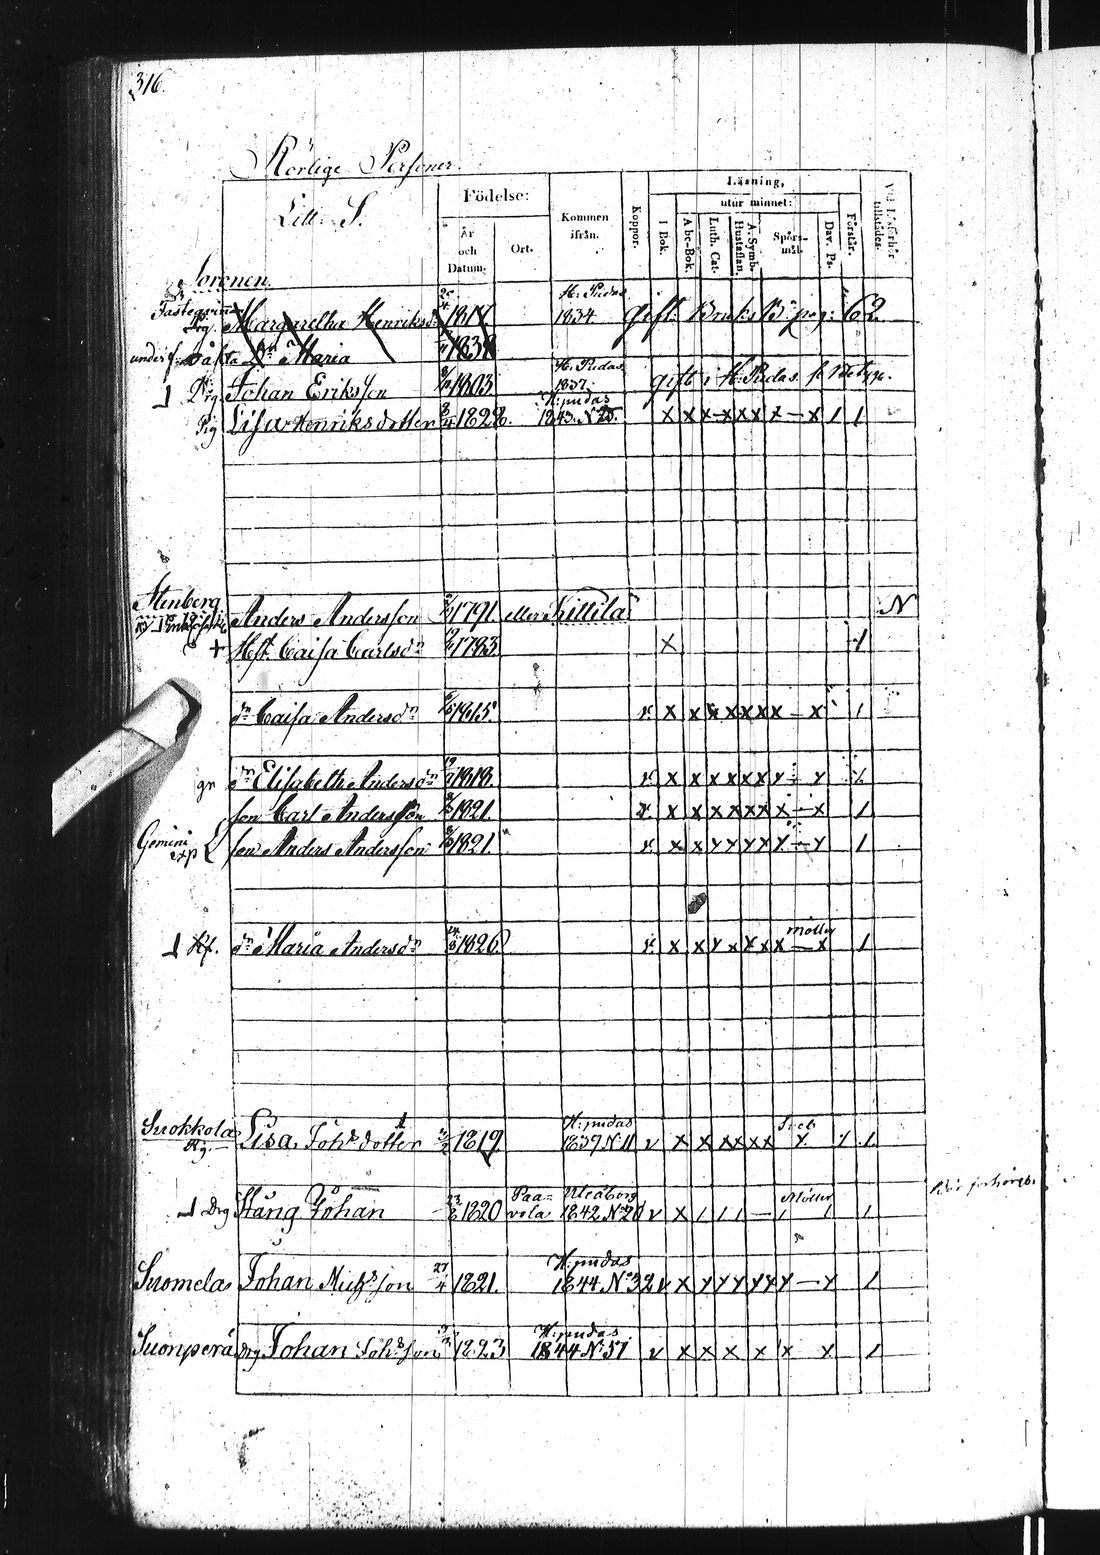 316.
Rörlige Personer.
Litt: S.
Födelse:
År och Datum.
Ort.
Kommen ifrån.
Koppor.
Läsning,
utur minnet:
I Bok.
Abc-Bok.
Luth. Cat.
Hustaflan.
A. Symb.
Spörs-mål.
Dav. Ps.
Förstår.
Vid Läsförhör tillstädes.
Soronen.
Margaretha Henriksdr 1817 H:Pudas 1834 gift
Maria
Johan Ericsson 1803 H:Pudas 1837. gift i H:Pudas
Pig Lisa Henriksdotter 1828. H:pudas 1843. N 25. x x x x x x x x — x 1 1
Stenberg
Anders Andersson 1791. eller Kittilä N
+ Hst. Caisa Carlsdr 1793. x 1
dr Caisa Andersdr 1815 v. x x x x x x x — x 1
gv dr Elisabeth Andersdr 1818. v. x x x x x x x — x
son Carl Andersson 1821. v. x x x x x x x — x 1
Gemini
exp son Anders Andersson 1821. v. x x x x x x x — x 1
dr Maria Andersdr 14/3 1826 v. x x x x x x x — x 1
Suokkola
Pig. Lisa Johsdotter 1819. H:pudas 1837 N 11 v x x x x x x x x 1
Drg Stång Johan 23/8 1820 Paavola Uleåborg 1842 N:20 v x 1 1 1 — 1 1 1
Bör förhöras.
Suomela Johan Michsson 27/4 1821. H:pudas 1844 No 32 v x x x x x x x — x 1
Suonperä Drg Johan Johsson 1823 H:pudas 1844 N:51 v x x x x x x 1